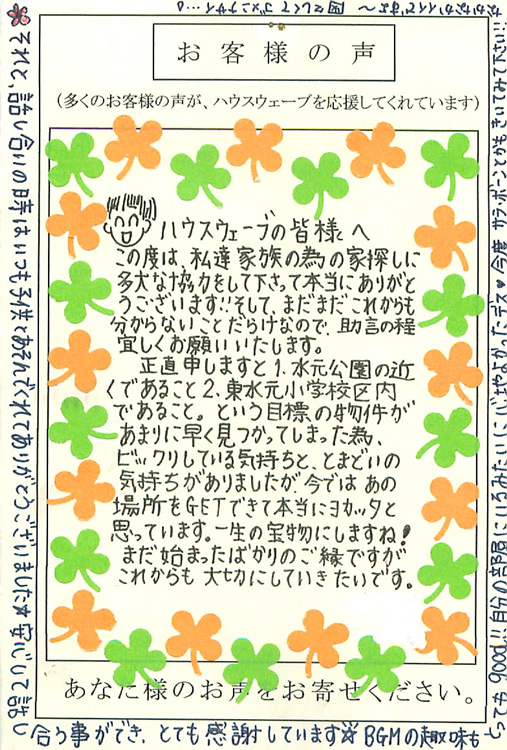 お客様の声
(多くのお客様の声が、ハウスウェーブを応援してくれています)
ハウスウェーブの皆様へ
この度は、私達家族の為の家探しに
多大な協力をして下さって本当にありがと
うございます!!そして、まだまだこれからも
分からないことだらけなので、助言の程
宜しくお願いいたします。
正直申しますと1.水元公園の近
くであること2.東水元小学校区内
であること。という目標の物件が
あまりに早く見つかってしまった為、
ビックリしている気持ちと、とまどいの
気持ちがありましたが今では あの
場所をGETできて本当にヨカッタと
思っています。一生の宝物にしますね!
まだ始まったばかりのご縁ですが
これからも 大切にしていきたいです。
あなた様のお声をお寄せください。
それと、話し合いの時はいつも子供とあそんでくれてありがとうございました☆安心して話し
合う事ができ、とても感謝しています☆BGMの趣味も
とってもgood!!自分の部屋にいるみたいに心地よかったデス♥今度 サラ・ボーンとかもきいてみて下さい!!
なかなかイイですよ〜